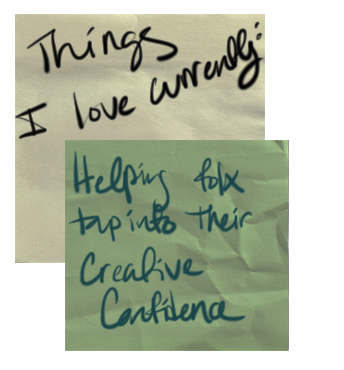 Things
I love currently:
Helping folx
tap into their
Creative
Confidence